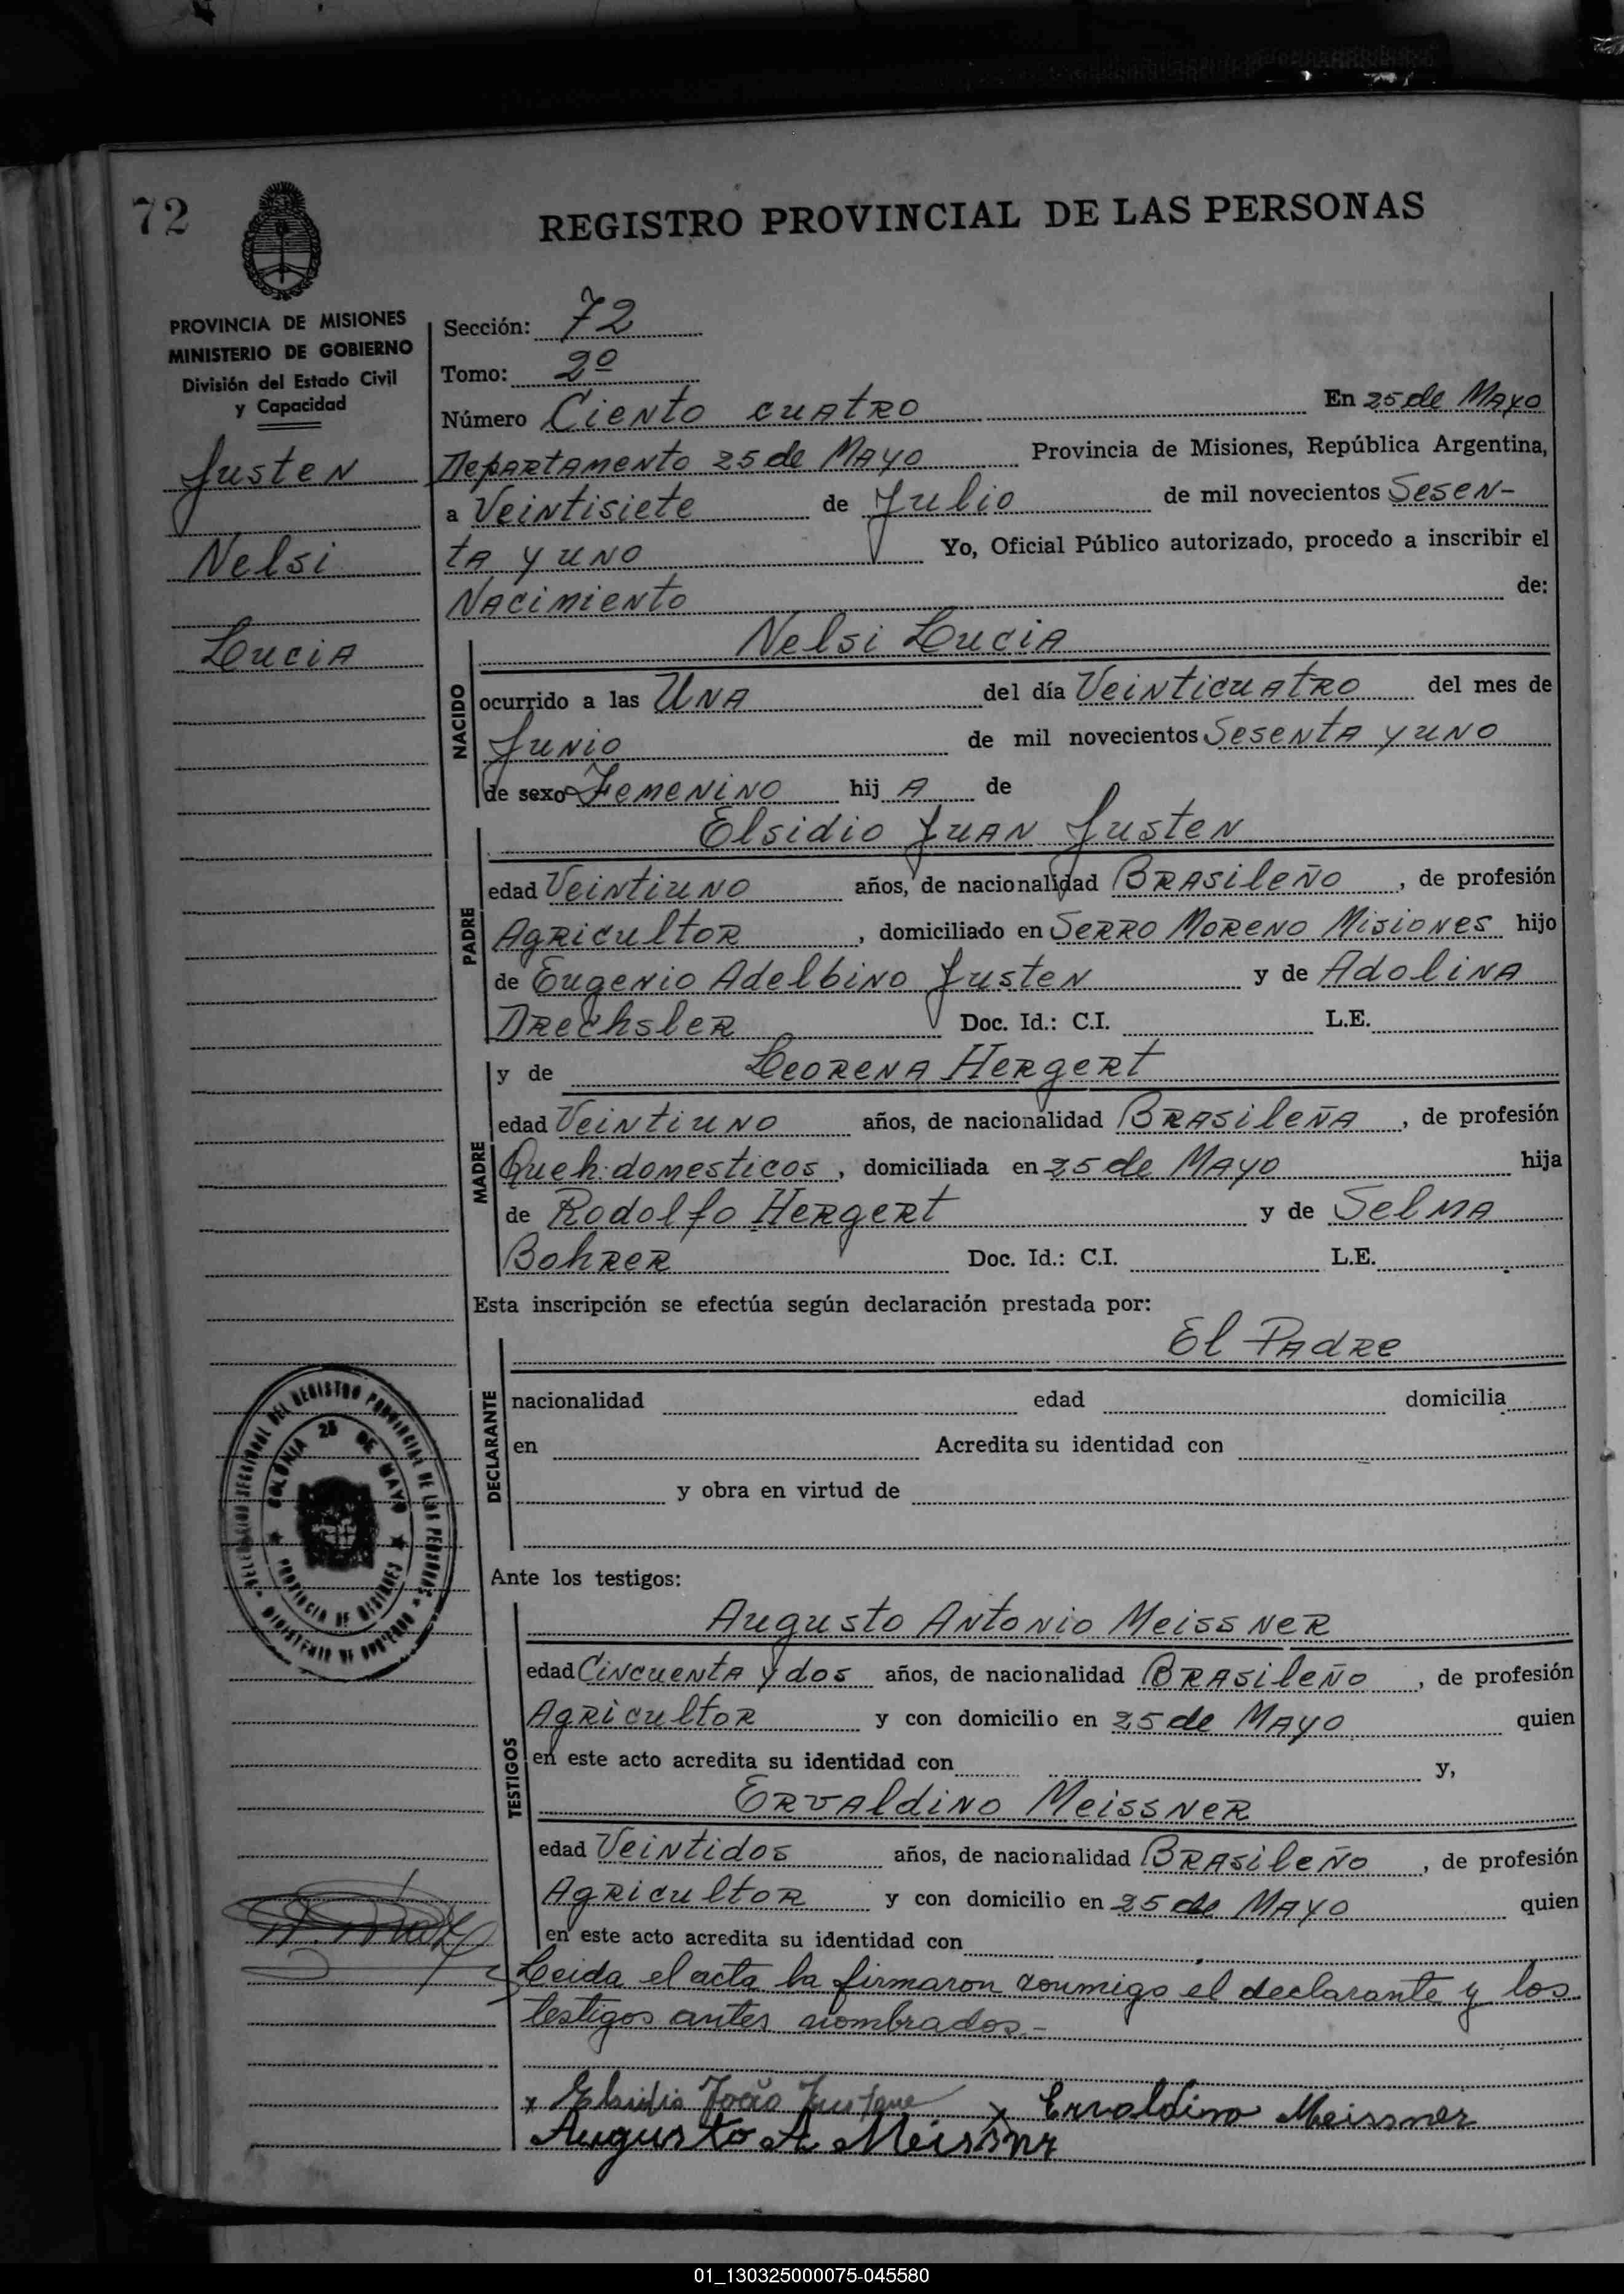 72
REGISTRO PROVINCIAL DE LAS PERSONAS
PROVINCIA DE MISIONES
MINISTERIO DE GOBIERNO
División del Estado Civil
y Capacidad
Justen
Nelsi
Lucia
Sección: 72
Tomo: 2º
Número Ciento cuatro En 25 de Mayo
Departamento 25 de Mayo Provincia de Misiones, República Argentina,
a Veintisiete de Julio de mil novecientos Sesen-
ta y uno Yo, Oficial Público autorizado, procedo a inscribir el
Nacimiento de:
NACIDO
Nelsi Lucia
ocurrido a las Una del día Veinticuatro del mes de
Junio de mil novecientos Sesenta y uno
de sexo Femenino hij A de
PADRE
Elsidio Juan Justen
edad Veintiuno años, de nacionalidad Brasileño, de profesión
Agricultor, domiciliado en Serro Moreno Misiones hijo
de Eugenio Adelbino Justen y de Adolina
Drechsler Doc. Id.: C.I. L.E.
MADRE
y de Leorena Hergert
edad Veintiuno años, de nacionalidad Brasileña, de profesión
Queh. domesticos, domiciliada en 25 de Mayo hija
de Rodolfo Hergert y de Selma
Bohrer Doc. Id.: C.I. L.E.
Esta inscripción se efectúa según declaración prestada por:
DECLARANTE
El Padre
nacionalidad edad domicilia
en Acredita su identidad con
y obra en virtud de
COLONIA 25 DE MAYO
PROVINCIA DE MISIONES
Ante los testigos:
TESTIGOS
Augusto Antonio Meissner
edad Cincuenta y dos años, de nacionalidad Brasileño, de profesión
Agricultor y con domicilio en 25 de Mayo quien
en este acto acredita su identidad con y,
Ervaldino Meissner
edad Veintidos años, de nacionalidad Brasileño, de profesión
Agricultor y con domicilio en 25 de Mayo quien
en este acto acredita su identidad con
Leida el acta la firmaron conmigo el declarante y los
testigos antes nombrados.-
x Elsidio João x Ervaldino Meissner
Augusto A Meissnr
01_130325000075-045580